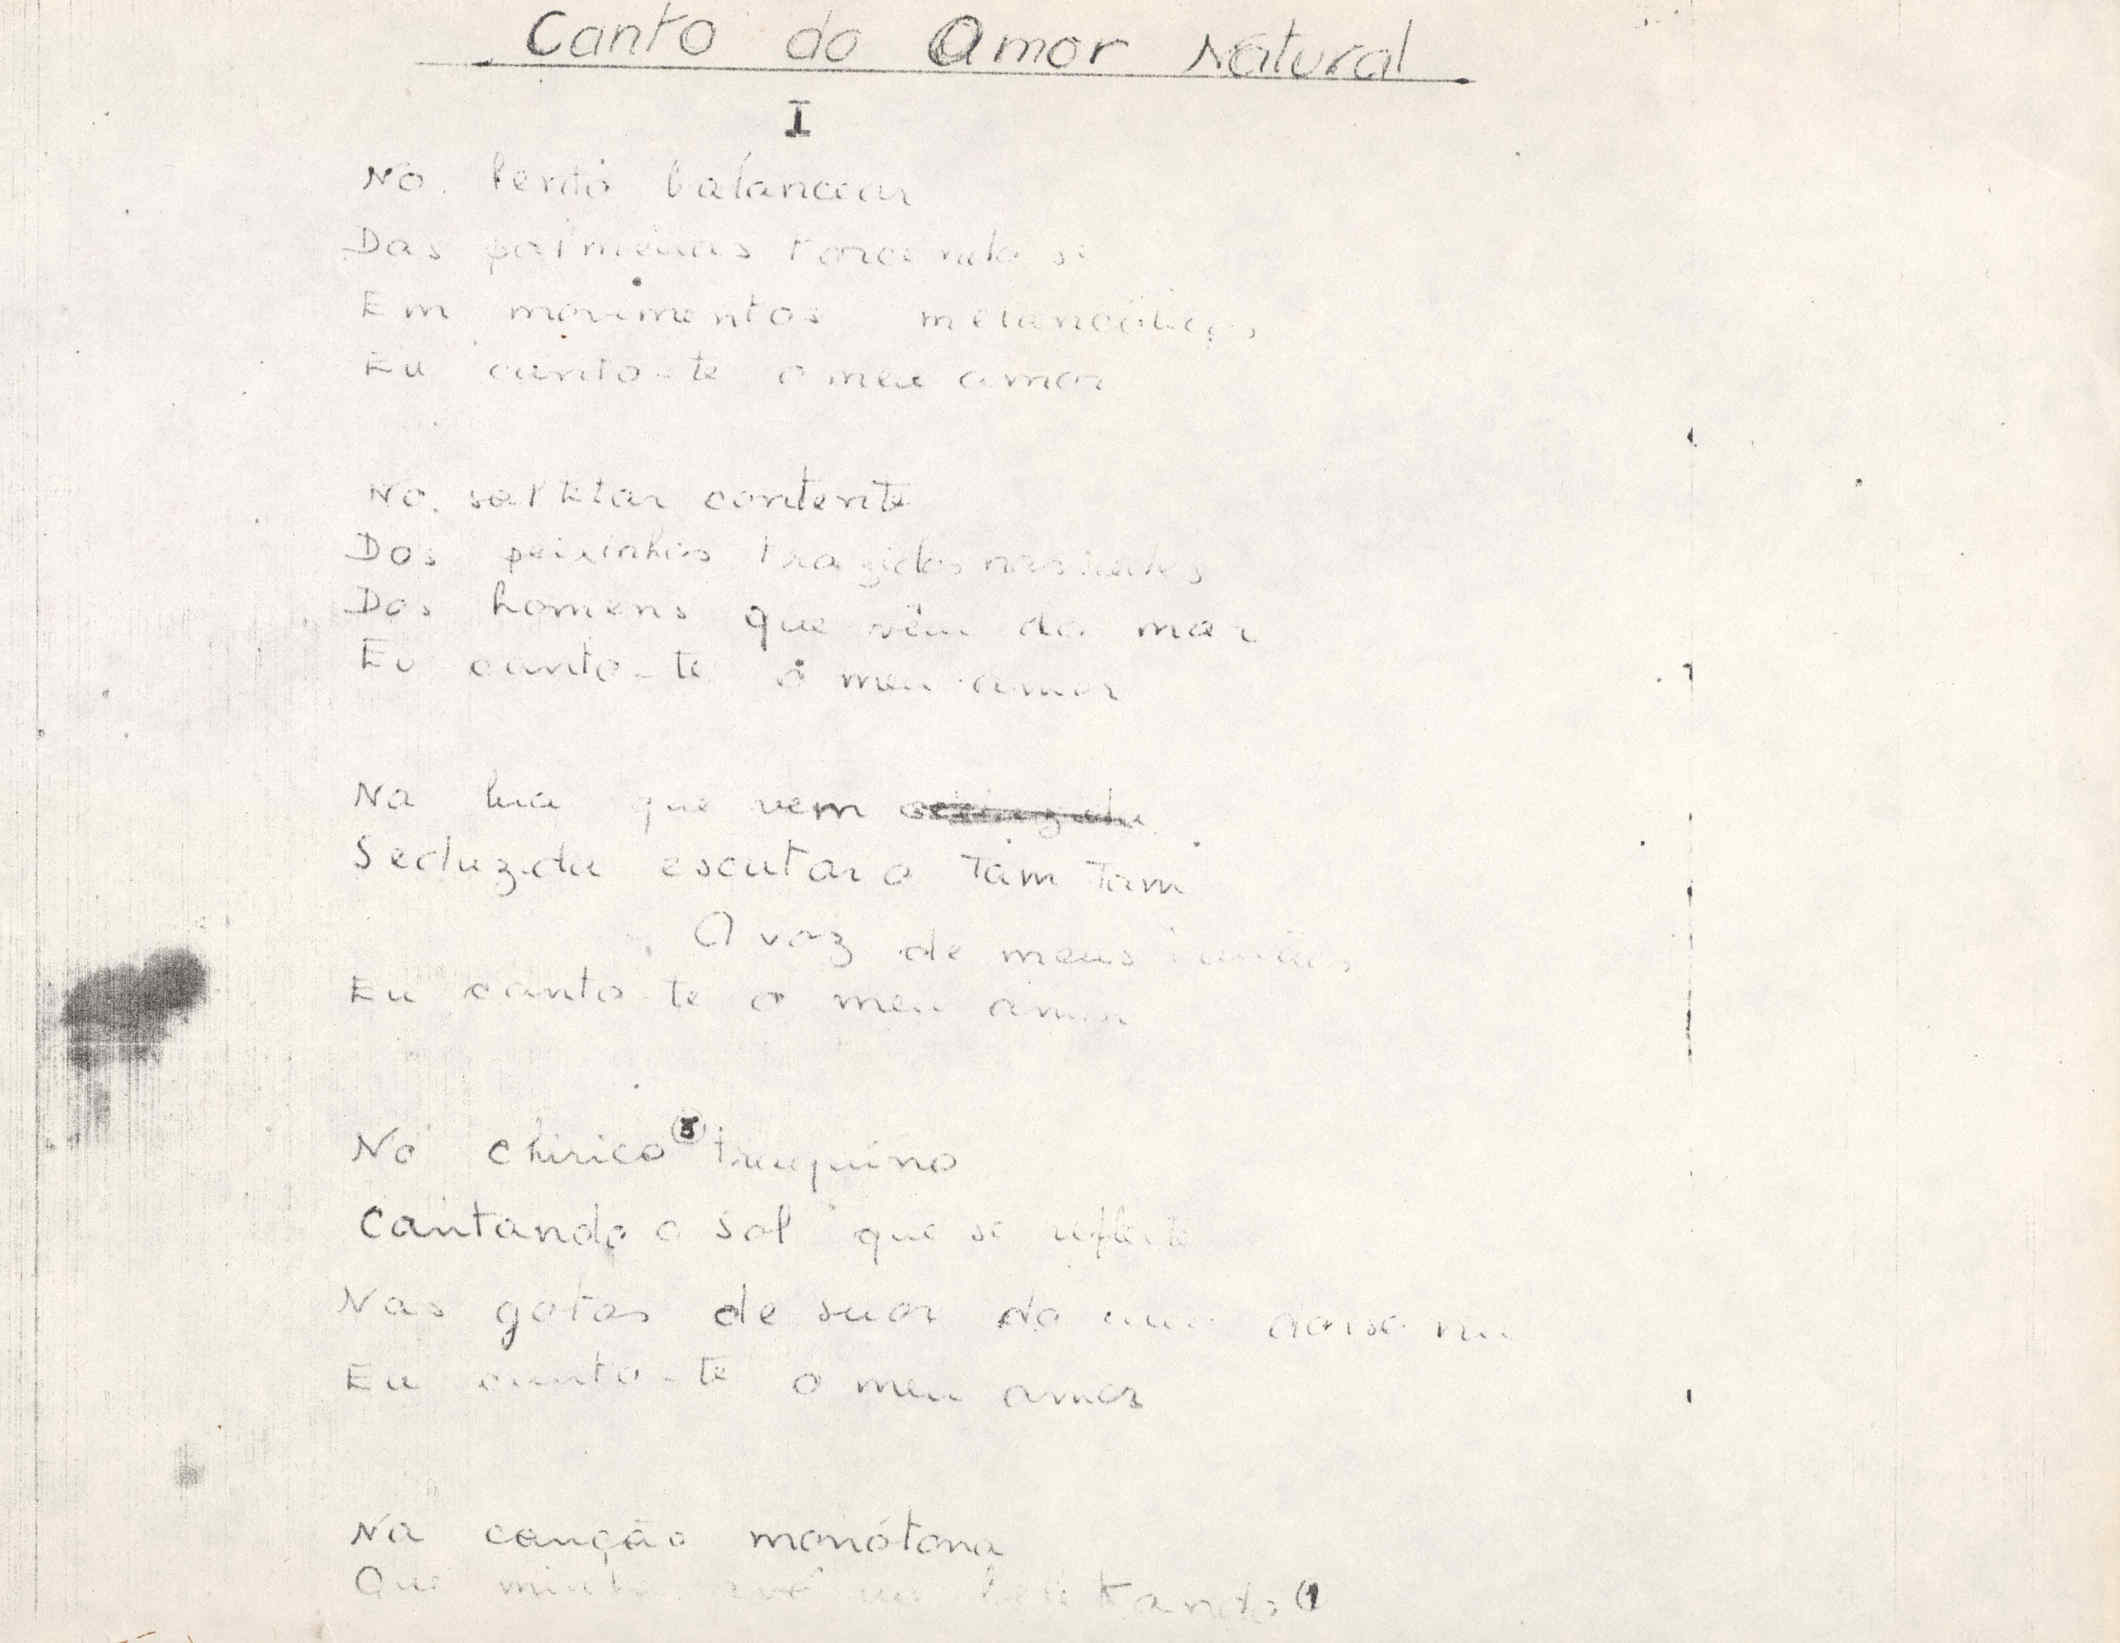 Canto do Amor Natural
I
No lento balancear
Das palmeiras torcendo se
Em movimentos melancólicos
Eu canto-te o meu amor
No saltitar contente
Dos peixinhos trazidos nas redes
Dos homens que vêm do mar
Eu canto-te o meu amor
Na lua que vem
Seduzida escutar o Tam Tam
A voz de meus irmãos
Eu canto-te o meu amor
No chirico traquino
Cantando o sol que se reflecte
Nas gotas de suor do meu dorso nu
Eu canto-te o meu amor
Na canção monótona
Que minha avó